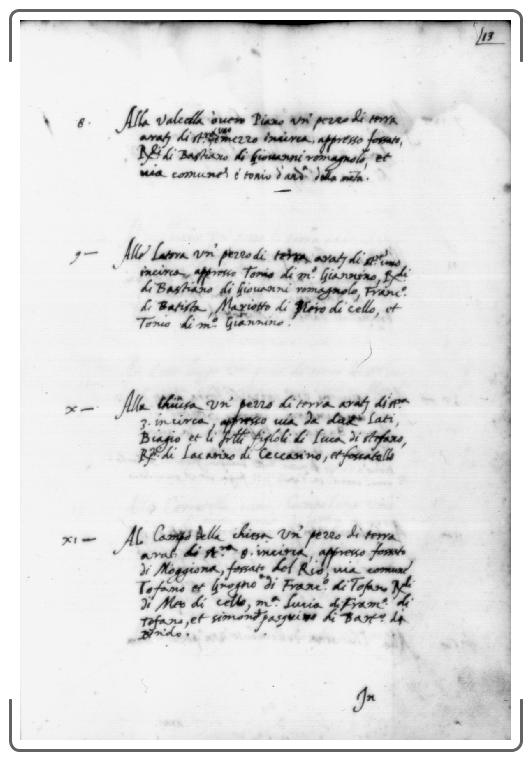 13
8. Alla Valcella overo Piano un' pezzo di terra
arat. di st. mezzo incirca, appresso fossato,
Rdi di Bastiano di Giovanni romagnolo, et
via comune, è tonio d'
9 — Alle Latora un' pezzo di terra arat. di st. uno
incirca, appresso Tonio di m.o Giannino, Rdi
di Bastiano di Giovanni romagnolo, Franc.o
di Batista, Mariotto di Piero di Cello, et
Tonio di m.o Giannino.
X — Alla Chiesa un' pezzo di terra arat. di st.a
3. incirca, appresso via da due Lati,
Biagio et li frlli figloli di Luca di stefano,
Rdi di Lacarino di Ceccarino, et fossatello
XI — Al Campo della chiesa un' pezzo di terra
arat. di st.a 8. incirca, appresso fossato
di Moggiona, fossato del Rio, via comune
Tofano et di Franc.o di Tofano Rdi
di Meo di Cello, m.a Lucia di Fram.o di
Tofano, et simone pasquino di Bart.o di
Brido.
In